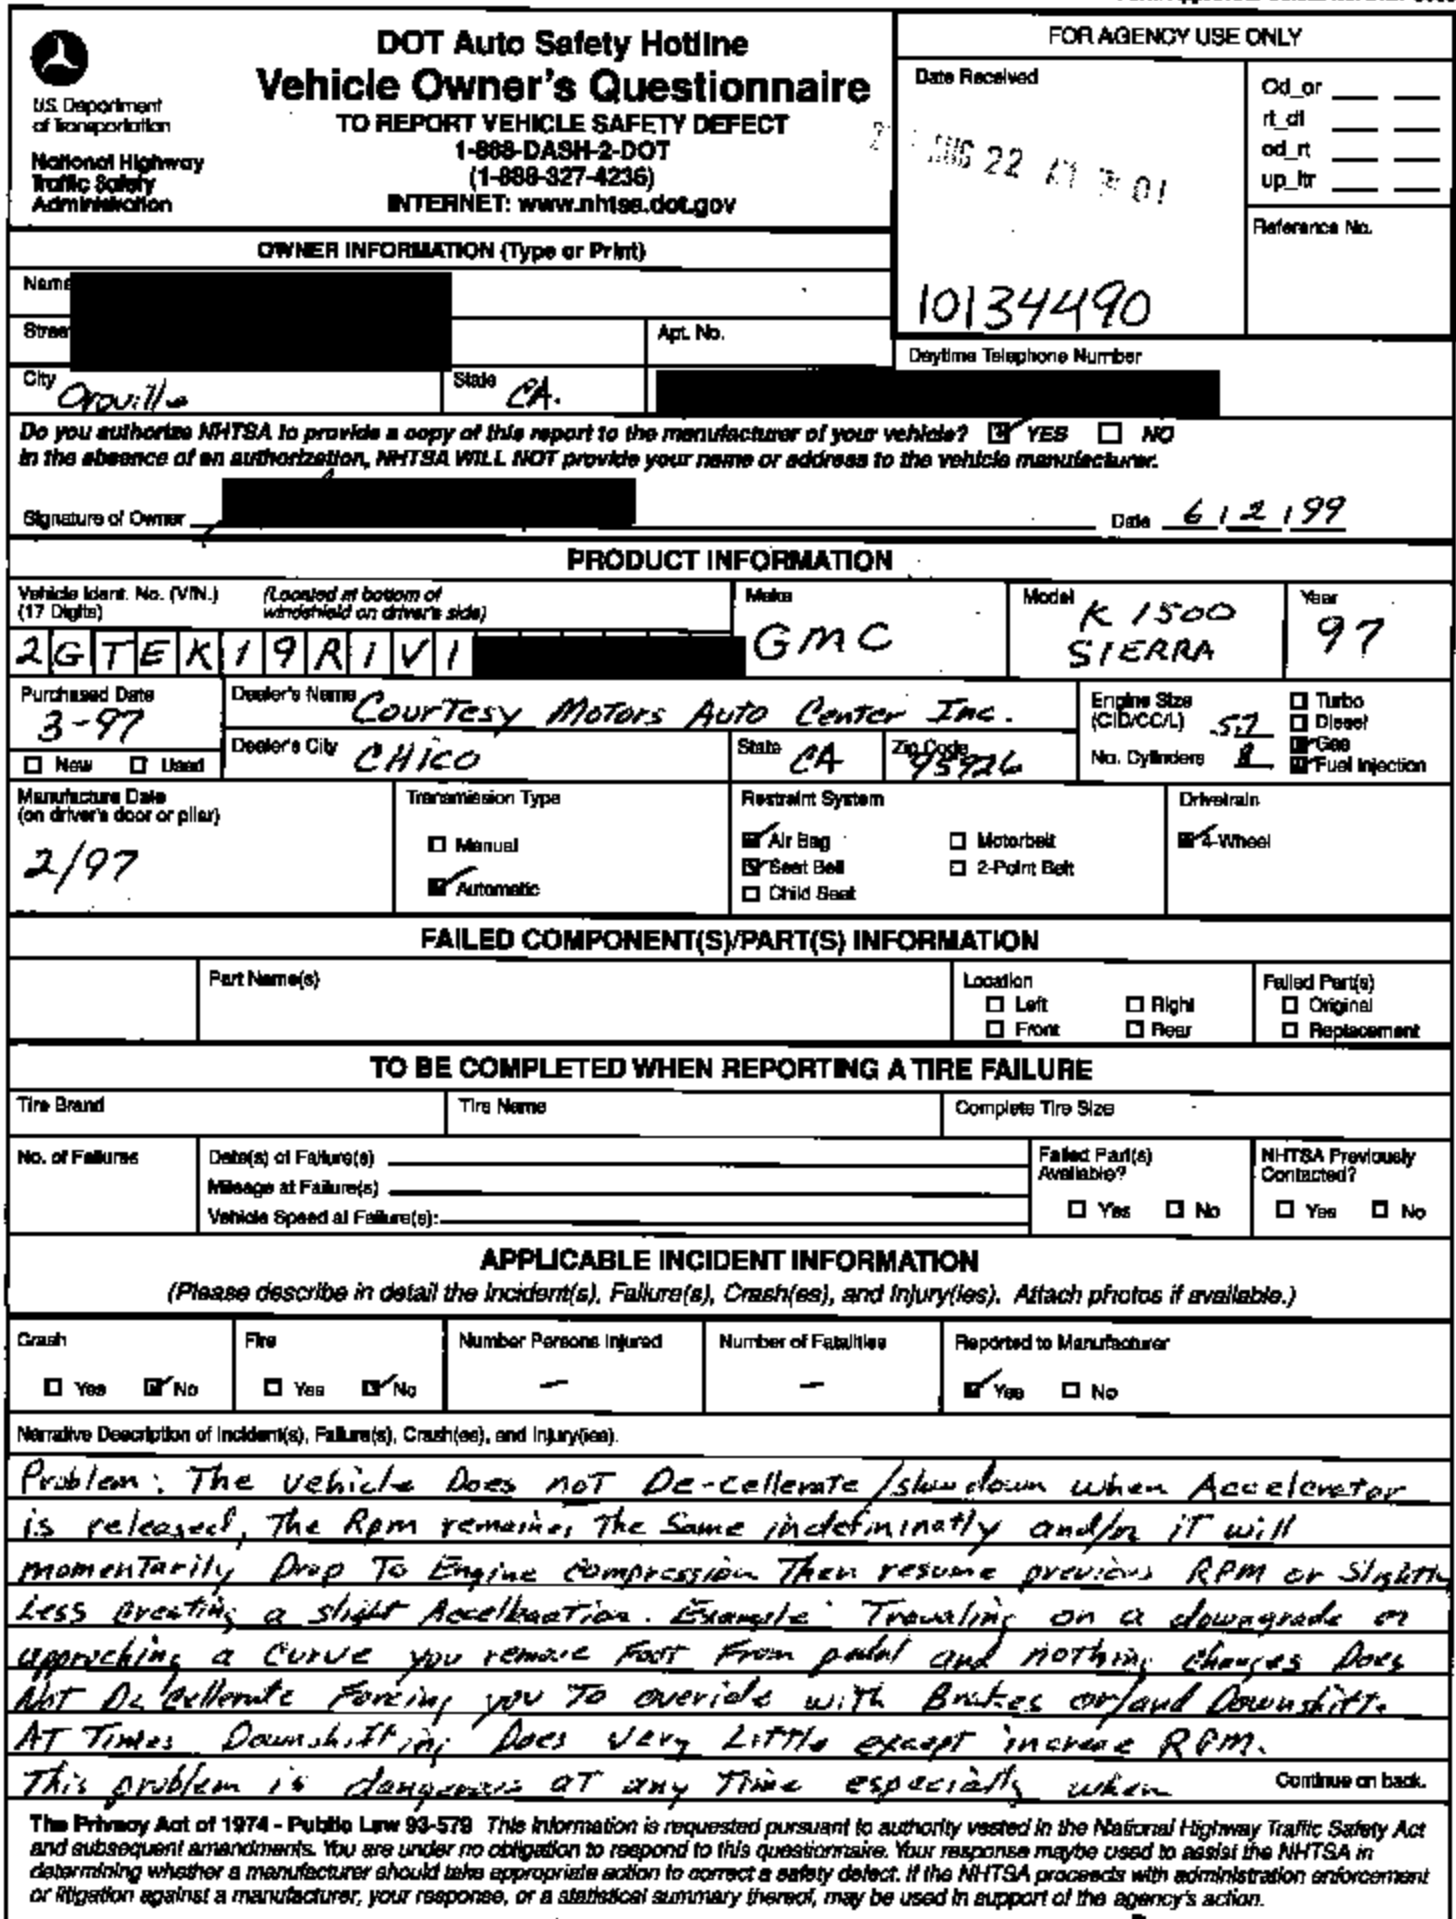 DOT Auto Safety Hotline
Vehicle Owner's Questionnaire
TO REPORT VEHICLE SAFETY DEFECT
1-888-DASH-2-DOT
(1-888-327-4236)
INTERNET: www.nhtsa.dot.gov
U.S. Department
of Transportation
National Highway
Traffic Safety
Administration
FOR AGENCY USE ONLY
Date Received
AUG 22
Od_or
rt_dl
od_rt
up_ltr
10134490
Reference No.
OWNER INFORMATION (Type or Print)
Name
Street
Apt. No.
Daytime Telephone Number
City Oroville
State CA.
Do you authorize NHTSA to provide a copy of this report to the manufacturer of your vehicle? YES NO
In the absence of an authorization, NHTSA WILL NOT provide your name or address to the vehicle manufacturer.
Signature of Owner Date 6 / 2 / 99
PRODUCT INFORMATION
Vehicle Ident. No. (VIN.) (Located at bottom of
(17 Digits) windshield on driver's side)
2GTEK19R1V1
Make
GMC
Model K 1500
SIERRA
Year
97
Purchased Date
3-97
New Used
Dealer's Name Courtesy Motors Auto Center Inc.
Dealer's City CHico
State CA
Zip Code 95926
Engine Size
(CID/CC/L) 5.7
No. Cylinders 8
Turbo
Diesel
Gas
Fuel Injection
Manufacture Date
(on driver's door or pillar)
2/97
Transmission Type
Manual
Automatic
Restraint System
Air Bag Motorbelt
Seat Belt 2-Point Belt
Child Seat
Drivetrain
4-Wheel
FAILED COMPONENT(S)/PART(S) INFORMATION
Part Name(s)
Location
Left Right
Front Rear
Failed Part(s)
Original
Replacement
TO BE COMPLETED WHEN REPORTING A TIRE FAILURE
Tire Brand Tire Name Complete Tire Size
No. of Failures
Date(s) of Failure(s)
Mileage at Failure(s)
Vehicle Speed at Failure(s):
Failed Part(s)
Available?
Yes No
NHTSA Previously
Contacted?
Yes No
APPLICABLE INCIDENT INFORMATION
(Please describe in detail the Incident(s), Failure(s), Crash(es), and Injury(ies). Attach photos if available.)
Crash
Yes No
Fire
Yes No
Number Persons Injured
—
Number of Fatalities
—
Reported to Manufacturer
Yes No
Narrative Description of Incident(s), Failure(s), Crash(es), and Injury(ies).
Problem: The vehicle Does noT De-cellerate/slow down when Accelerator
is released, The Rpm remaines The Same indefininatly and/or iT will
momenTarily Drop To Engine Compression Then resume previous RPM or Slightly
Less creating a slight Accelleration. Example: Traveling on a downgrade or
approching a Curve you remove FooT From pedal and noThing changes Does
NoT De cellerate Forcing you To overide with Brakes or/and Downshift.
AT Times Downshifting Does Very LiTTle except increase RPM.
This problem is dangerous aT any Time especially when Continue on back.
The Privacy Act of 1974 - Public Law 93-579 This information is requested pursuant to authority vested in the National Highway Traffic Safety Act
and subsequent amendments. You are under no obligation to respond to this questionnaire. Your response maybe used to assist the NHTSA in
determining whether a manufacturer should take appropriate action to correct a safety defect. If the NHTSA proceeds with administration enforcement
or litigation against a manufacturer, your response, or a statistical summary thereof, may be used in support of the agency's action.